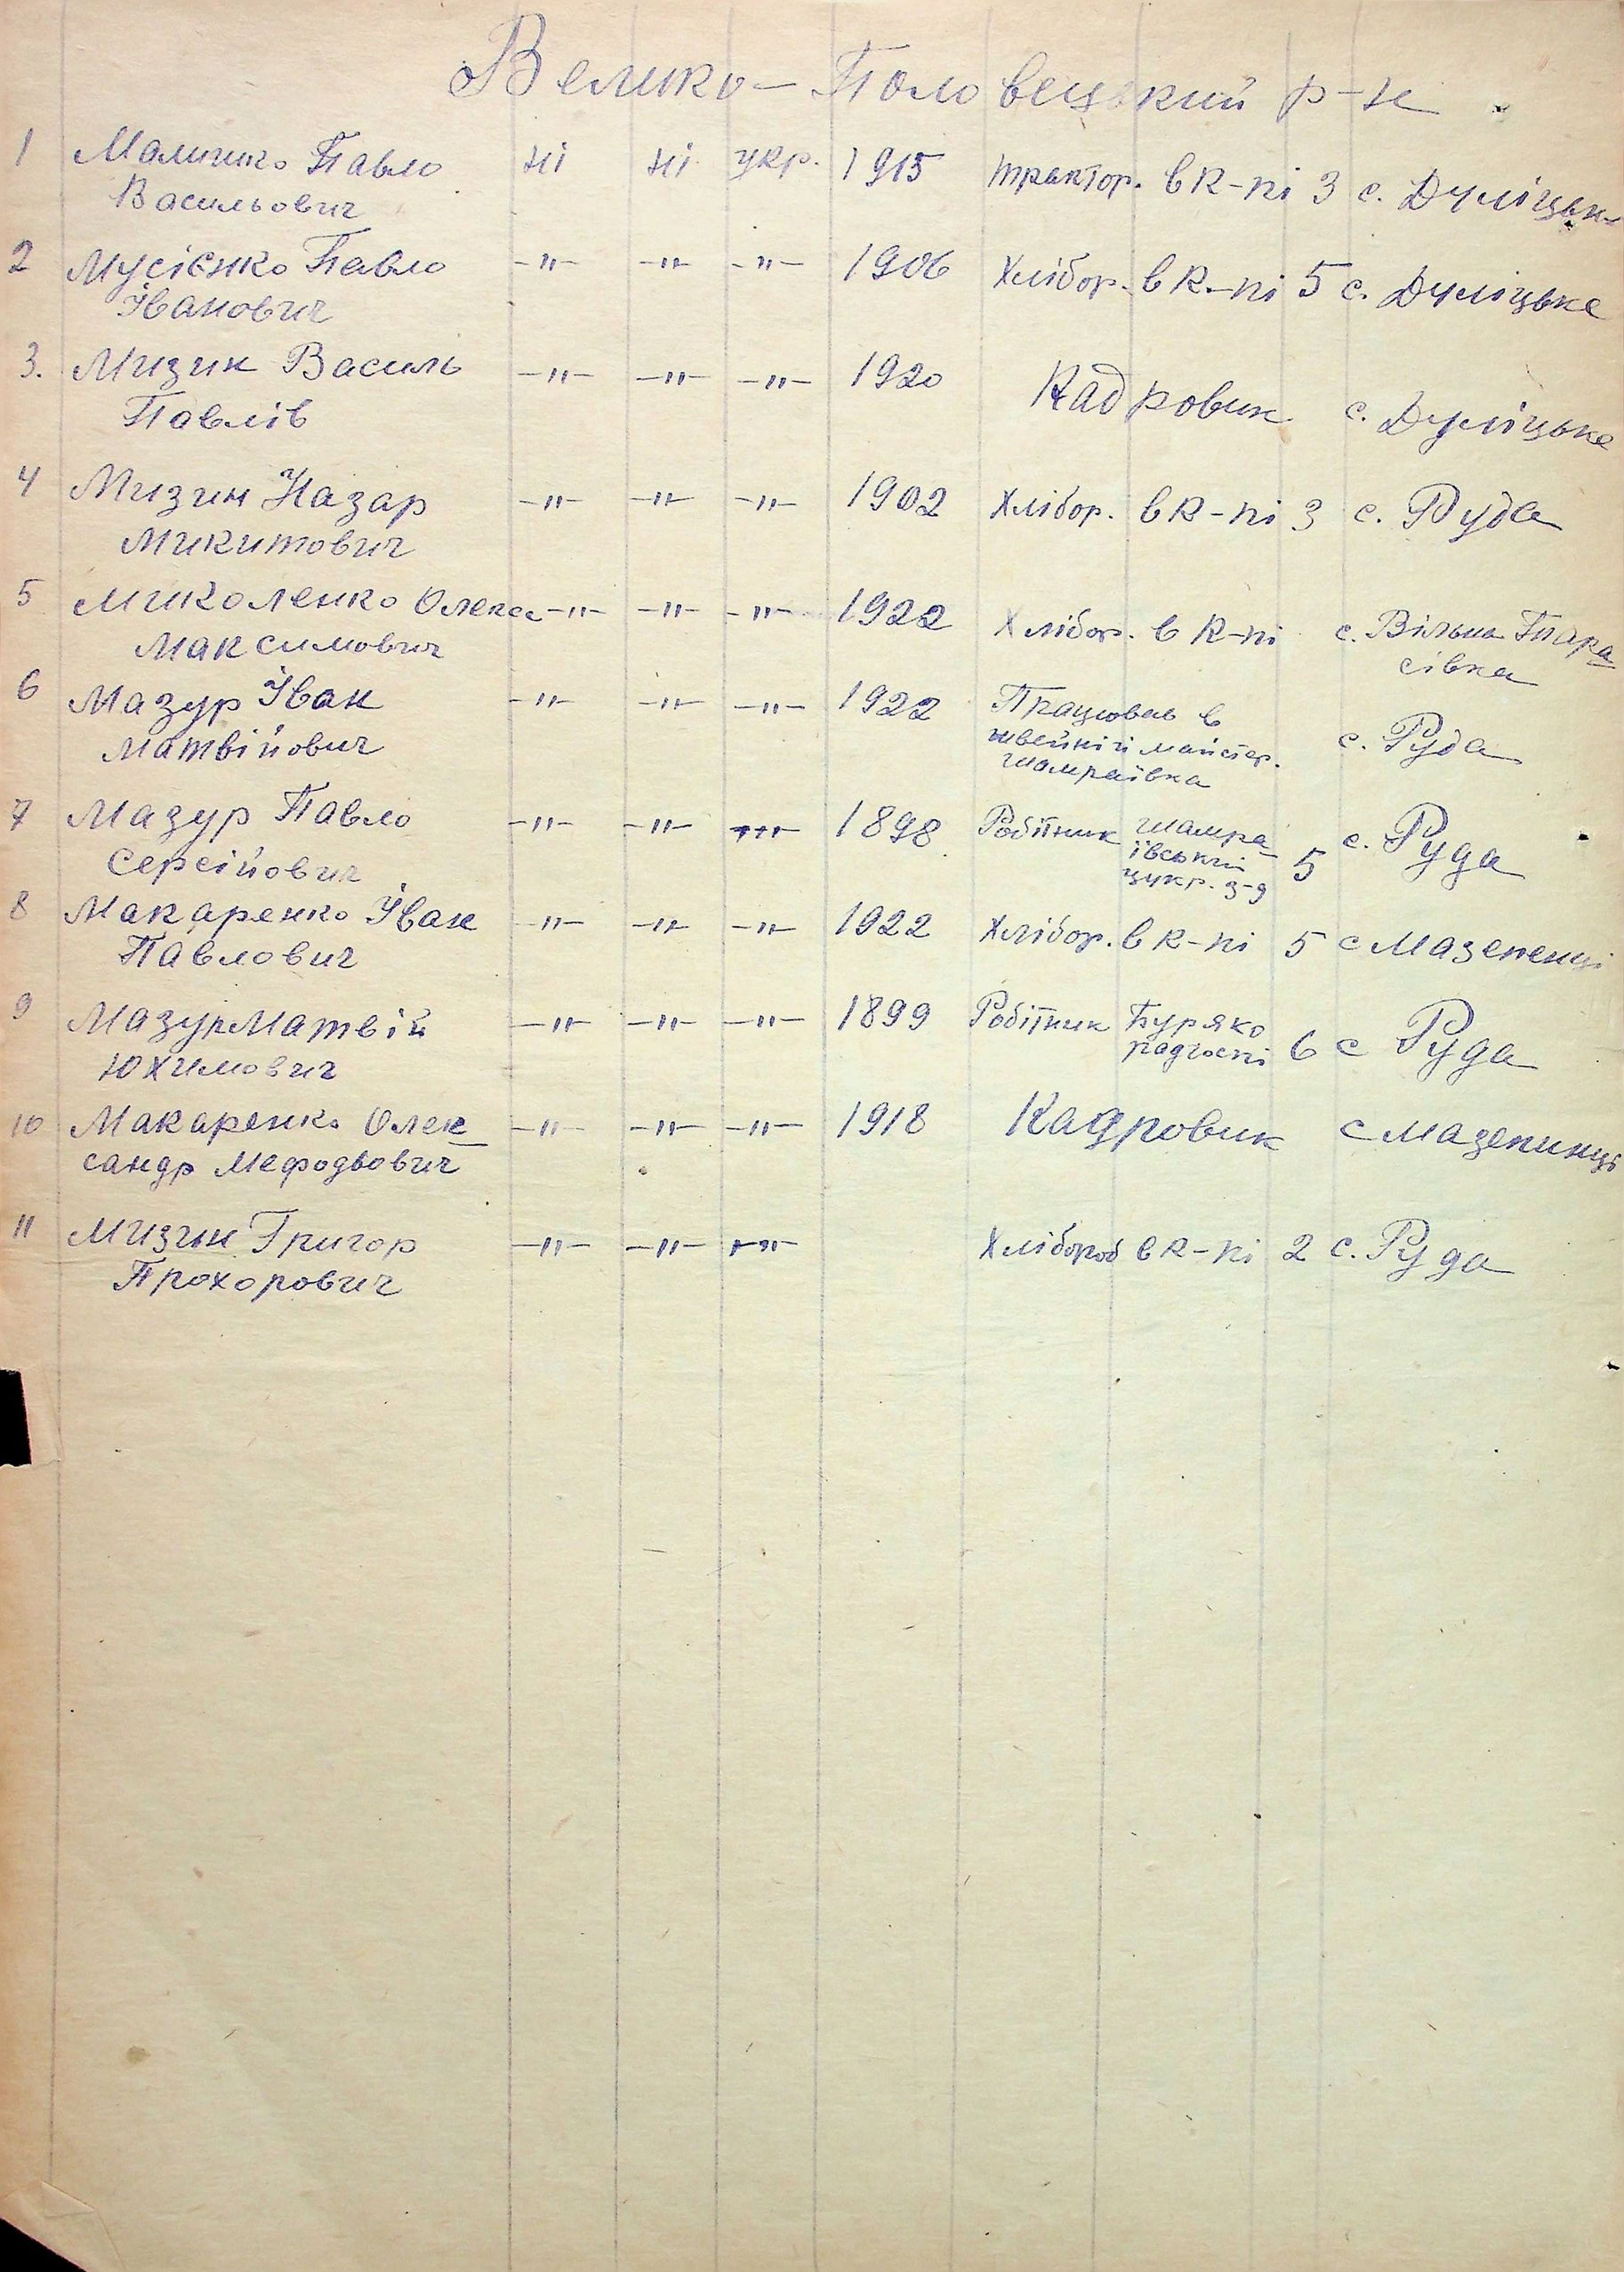 Велико-Половецький р-н
1 Малишко Павло ні ні укр. 1915 трактор. в к-пі 3 с. Дуліцьке
Васильович
2 Мусієнко Павло -"- -"- -"- 1906 Хлібор. в к-пі 5 с. Дуліцьке
Іванович
3. Мизин Василь -"- -"- -"- 1920 Кадровик с. Дуліцьке
Павлів
4 Мизин Назар -"- -"- -"- 1902 Хлібор. в к-пі 3 с. Руда
Микитович
5 Миколенко Олекса -"- -"- -"- 1922 Хлібор. в к-пі с. Вільна Тара
Максимович сівка
6 Мазур Іван -"- -"- -"- 1922 Працював в с. Руда
Матвійович швейній майстер.
Шамраївка
7 Мазур Павло -"- -"- -"- 1898 Робітник Шамра- 5 с. Руда
Сергійович ївський
цукр. з-д
8 Макаренко Іван -"- -"- -"- 1922 Хлібор. в к-пі 5 с Мазепенці
Павлович
9 Мазур Матвій -"- -"- -"- 1899 Робітник Буряко 6 с Руда
Юхимович радгоспі
10 Макаренко Олек -"- -"- -"- 1918 Кадровик с Мазепинці
сандр Мефодьович
11 Мизин Григор -"- -"- -"- Хлібороб в к-пі 2 с. Руда
Прохорович